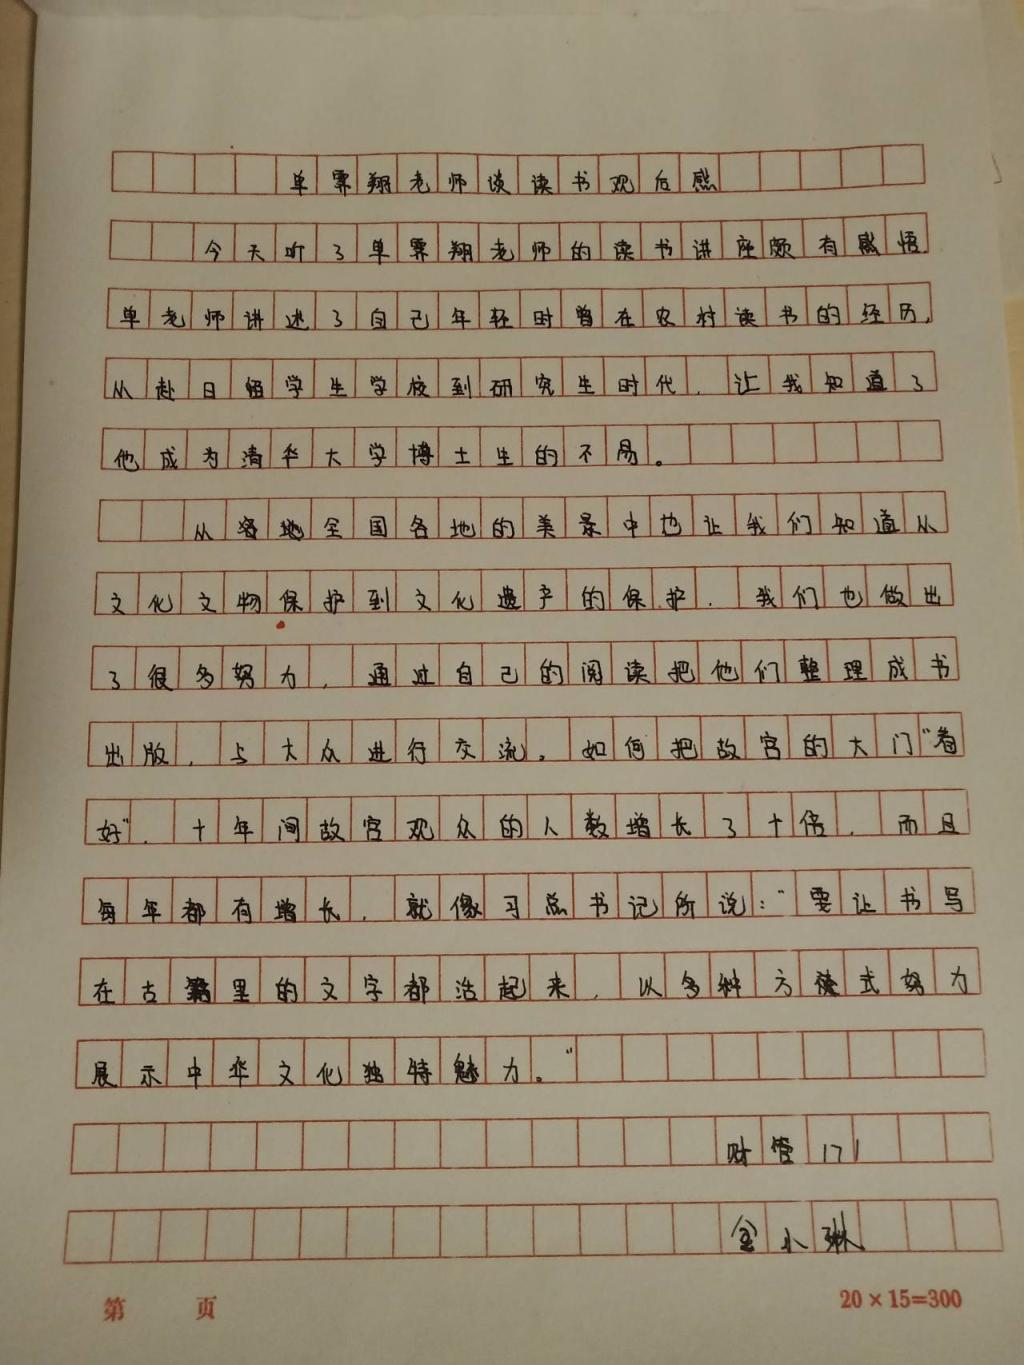 单霁翔老师谈读书观后感
今天听了单霁翔老师的读书讲座颇有感悟.
单老师讲述了自己年轻时曾在农村读书的经历,
从赴日留学生学校到研究生时代,让我知道了
他成为清华大学博士生的不易。
从各地全国各地的美景中也让我们知道从
文化文物保护到文化遗产的保护.我们也做出
了很多努力,通过自己的阅读把他们整理成书
出版,与大众进行交流。如何把故宫的大门“看
好”,十年间故宫观众的人数增长了十倍,而且
每年都有增长,就像习总书记所说:“要让书写
在古籍里的文字都活起来,以多种方式努力
展示中华文化独特魅力。”
财管171
金小琳
第 页
20×15=300